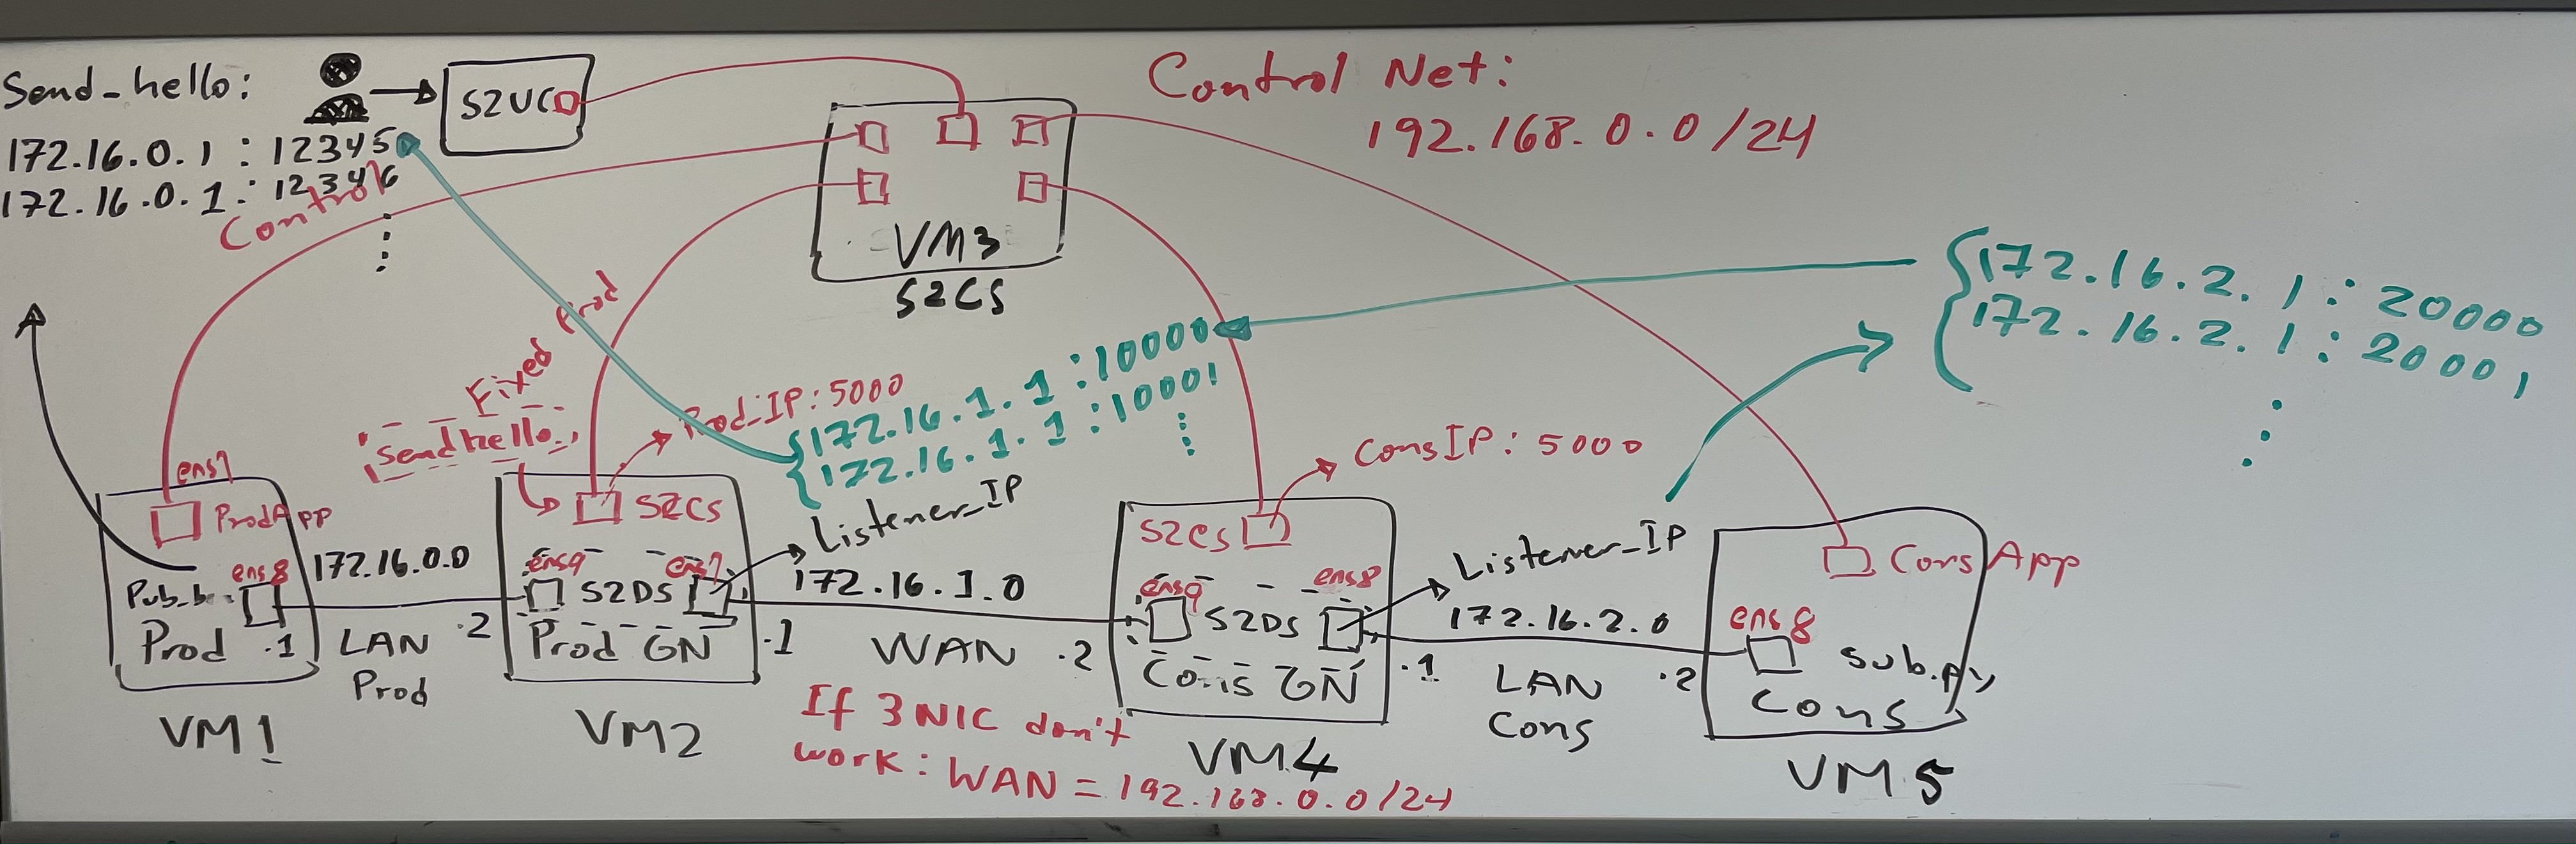 Send_hello:
172.16.0.1 : 12345
172.16.0.1 : 12346
Control
S2UC
Control Net:
192.168.0.0/24
VM3
S2CS
172.16.2.1 : 20000
172.16.2.1 : 20001
Fixed Prod
Send hello
Prod_IP: 5000
172.16.1.1 : 10000
172.16.1.1 : 10001
ConsIP: 5000
ens7
ProdApp
Pub_b
ens8
Prod .1
VM1
172.16.0.0
LAN
Prod
.2
S2CS
ens9
S2DS
ens7
Prod GN
VM2
Listener_IP
172.16.1.0
.1
WAN
.2
If 3 NIC don't
work: WAN = 192.168.0.0/24
S2CS
ens9
S2DS
ens8
Cons GN
VM4
Listener_IP
172.16.2.0
.1
LAN
Cons
.2
Cons App
ens8
sub.py
Cons
VM5